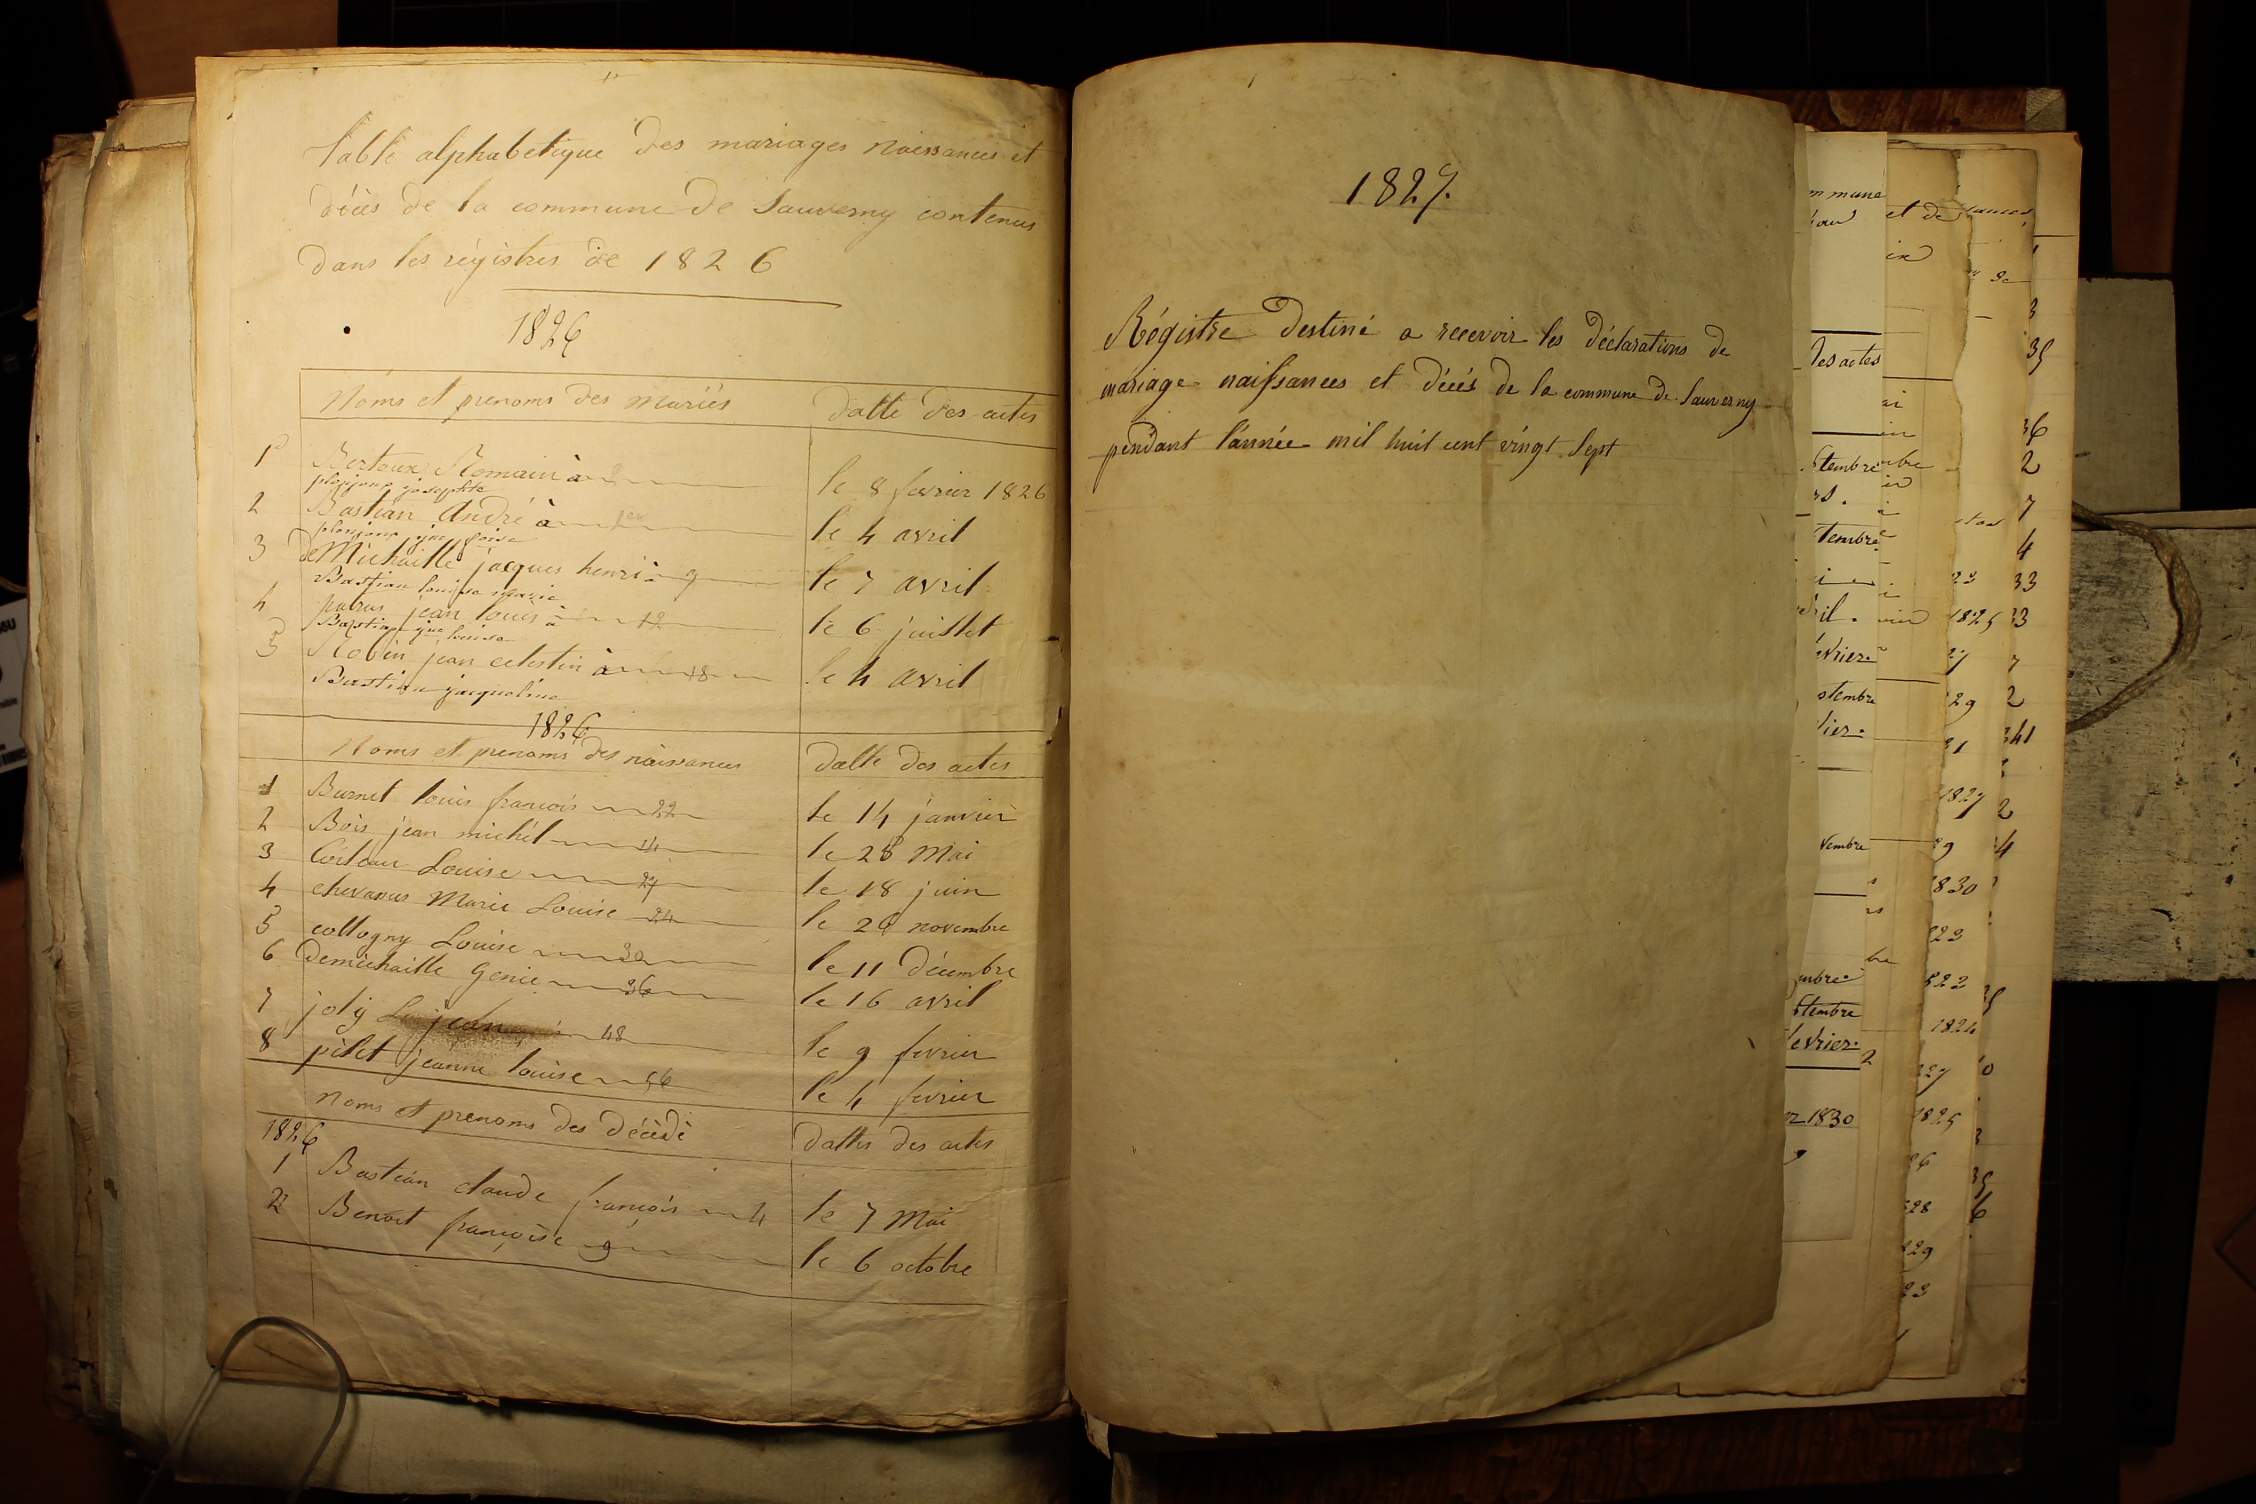 Table alphabetique des mariages Naissances et
décès de la commune de Sauverny contenus
dans les régistres de 1826
1826
Noms et prenoms des mariés
datte des actes
1 Bertoux Romain à 2 le 8 fevrier 1826
josephte
2 Bastian André à 1er le 4 avril
3 de Michaille jacques henri à 9 le 7 avril
Bastian louise marie
4 jean louis à 12 le 6 juillet
Bastian
5 Robin jean celestin à 18 le 4 avril
Bastian jacqueline
1826
Noms et prenoms des naissances
datte des actes
1 Burnet louis francois 22 le 14 janvier
2 Bois jean michel 14 le 28 Mai
3 Louise 27 le 18 juin
4 chevanus Marie Louise 24 le 29 novembre
5 collogny Louise 30 le 11 décembre
6 demichaille Genie 36 le 16 avril
7 joly jean 48 le 9 fevrier
8 pilet jeanne louise 56 le 4 fevrier
noms et prenoms des décèdé
dattes des actes
1826
1 Bastian claude francois 4 le 7 Mai
2 Benoit françoise 9 le 6 octobre
1827.
Régistre destiné a recevoir les déclarations de
mariage naissances et décés de la commune de Sauverny
pendant l'année mil huit cent vingt Sept
mmune
et de
des actes
tembre
tembre
vril.
évrier.
stembre
vembre
embre
tembre
fevrier.
1830
1825
1827
1830
1824
1825